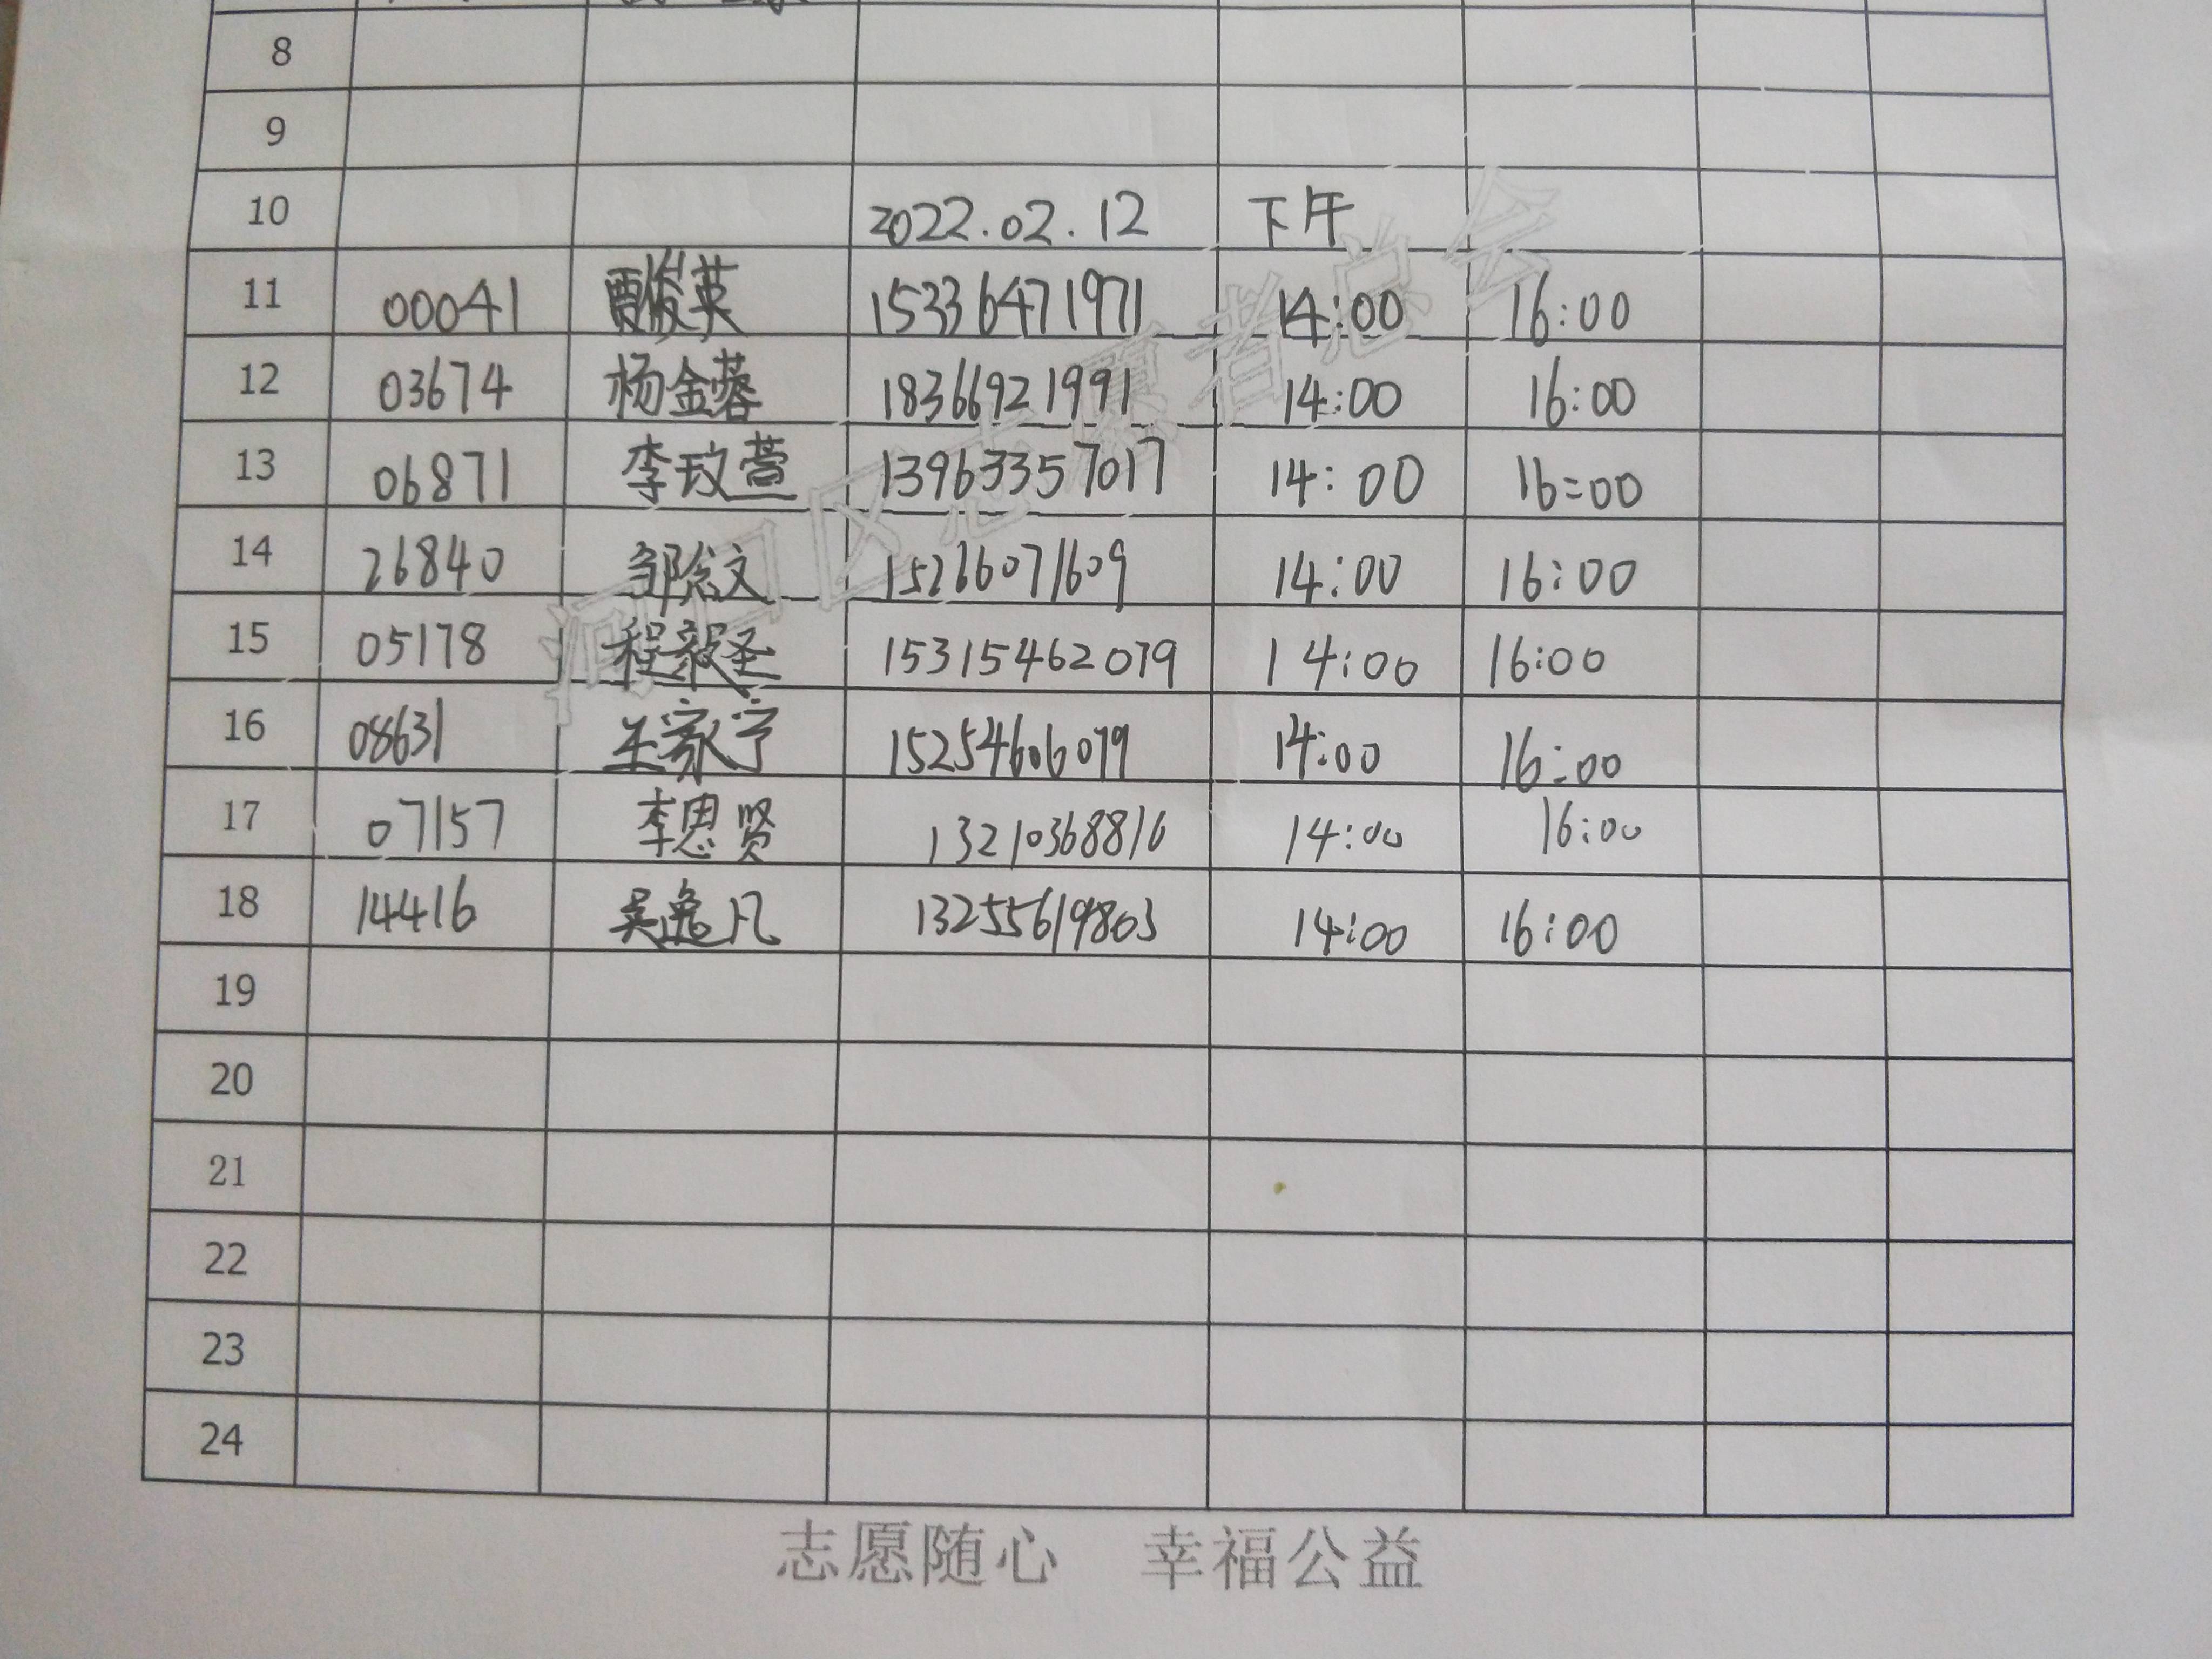 8
9
10 2022.02.12 下午
11 00041 贾俊英 15336471971 14:00 16:00
12 03674 杨金蓉 18366921991 14:00 16:00
13 06871 李玟萱 13963357017 14:00 16:00
14 26840 邹念文 15266071609 14:00 16:00
15 05178 程毅圣 15315462079 14:00 16:00
16 08631 王家宁 15254606079 14:00 16:00
17 07157 李思贤 13210368816 14:00 16:00
18 14416 吴逸凡 13255619803 14:00 16:00
19
20
21
22
23
24
河口区志愿者总会
志愿随心 幸福公益